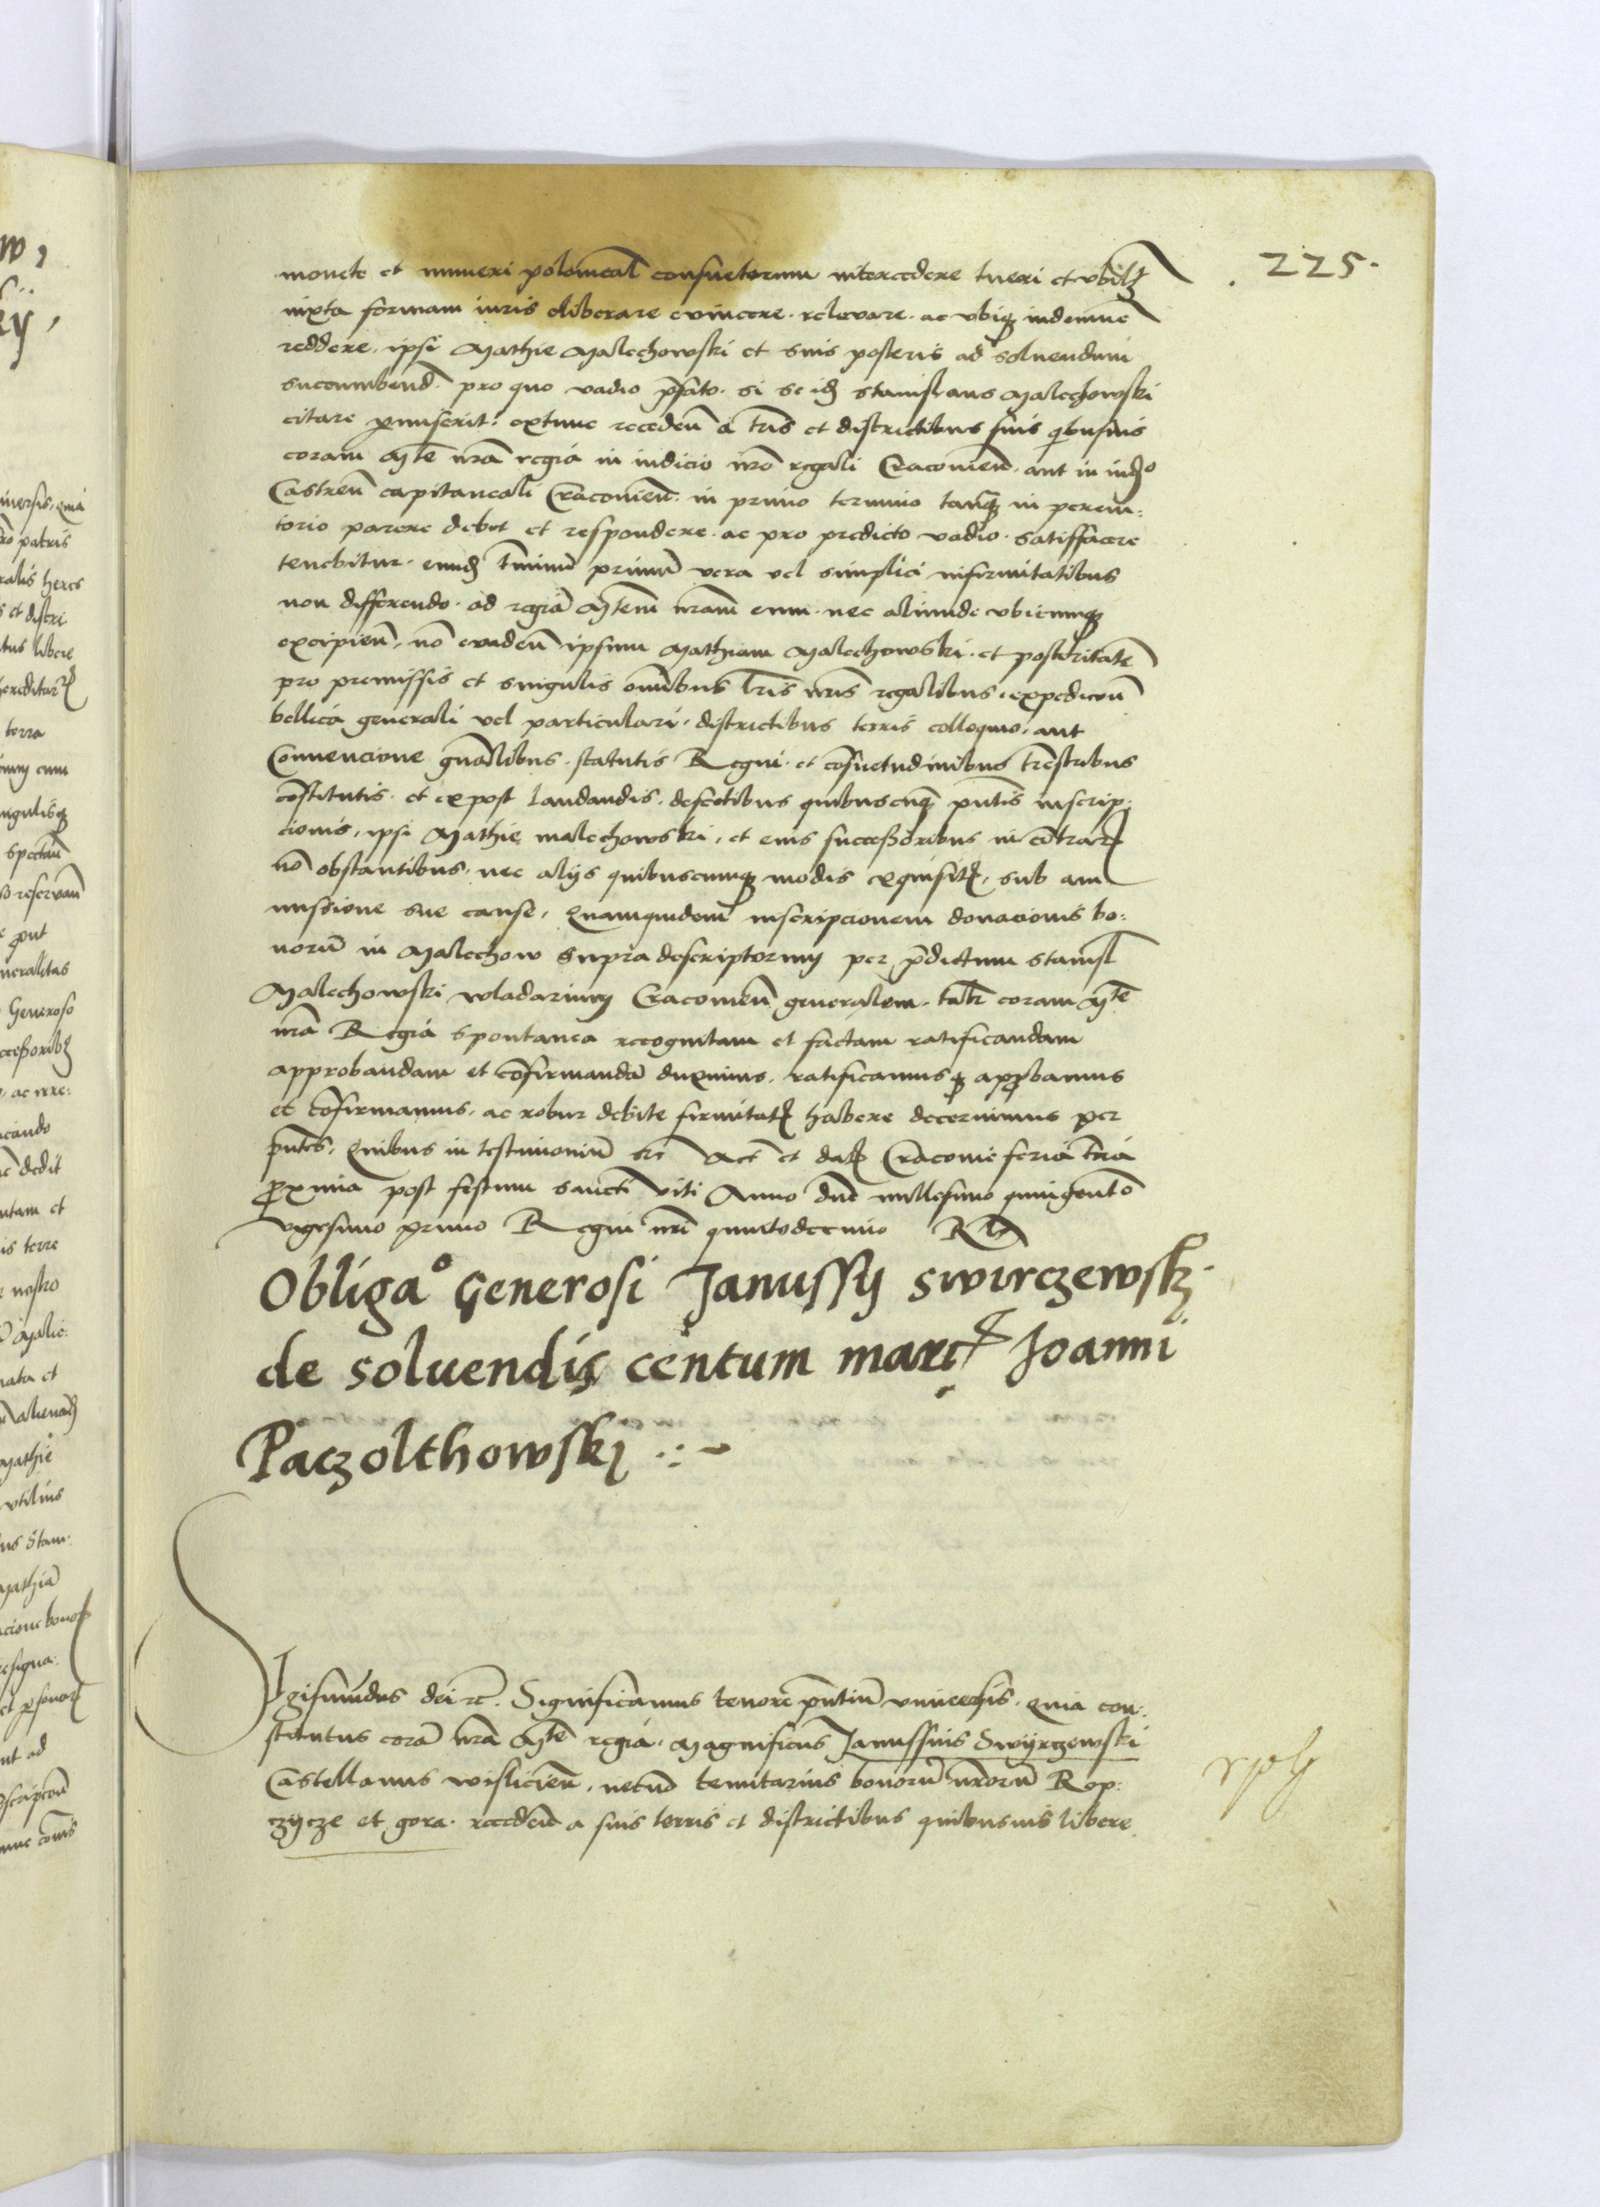 225.
monete et numeri polonicał consuetorum intercedere tueri et vbilꝫ
iuxta formam iuris eliberare evincere. relevare. ac vbiqꝫ indemnē
reddere. ipsi Mathie Malechowski et suis posteris ad soluendum
succumbend. pro quo vadio p̄fato. si se idꝫ Stanislaus Malechowski
citare p̱miserit: extunc recedeñ a tr̄is et districtibus suis qͥbusuis
coram Mt̄e nr̄a regia in iudicio nr̄o regali Cracovień. aut in iudº
Castreñ capitaneali Cracovień. in primo termino tanqꝫ in perem:
torio parere debet et respondere. ac pro predicto vadio. satisfacere
tenebitur. eundꝫ t̄minū primū vera vel simplici infirmitatibus
non differendo. ad regiā Mt̄em nr̄am eum. nec aliunde vbicunqꝫ
excipień. nō evadeñ ipsum Mathiam Malechowski. et posteritatē
pro premissis et singulis om̄ibus lr̄is nr̄is regalibus. expedicōn
bellica generali vel particulari. districtibus terris colloquio. aut
Convencione gn̄alibus. statutis Regni. et cōsuetudinibus tr̄estribus
cōstitutis. et expost laudandis. defectibus quibuscūqꝫ pn̄tis inscrip:
cionis. ipsi Mathie malechowski. et eius successoribus in cōtrarꝫ
nō obstantibus. nec alijs quibuscunqꝫ modis exquisitꝫ. sub am
missione sue cause. Quamquidem inscripcionem donacionis bo:
norū in Malechow supradescriptorum per p̄dictum Stanisł
Malechowski wladarium Cracovień generalem. coram Mt̄e
nr̄a Regia spontanea recognitam et factam ratificandam
approbandam et cōfirmandā duximus. ratificamusqꝫ app̱bamus
et cōfirmamus. ac robur debite firmitatꝫ habere decernimus per
pn̄tes. Quibus in testimoniū etc̄ Act̄ et datꝫ Cracovie feria t̄cia
p̱xima post festum sancti Viti Anno dn̄i millesimo quingentº
vigesimo primo Regni nr̄i quintodecimo
Obligaº Generosi Janussij Swirczewskꝫ.
de soluendis centum marcꝫ Joanni
Paczolthowskj .:~
Sigismūdus dei rc̄. Significamus tenore pn̄tiū vniversis. quia con:
stitutus corā nr̄a Mt̄e regia. Magnificus Janussius Swyrczewski
Castellanus wislicień. necnō tenutarius bonorū nr̄orū Rop:
czycze et gora. recedeñ a suis terris et districtibus quibusuis libere